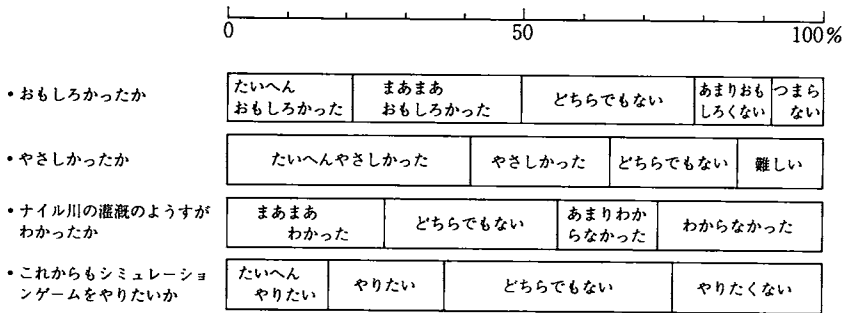 0 50 100%
・おもしろかったか
たいへん
おもしろかった
まあまあ
おもしろかった
どちらでもない
あまりおも
しろくない
つまら
ない
・やさしかったか
たいへんやさしかった
やさしかった
どちらでもない
難しい
・ナイル川の灌漑のようすが
わかったか
まあまあ
わかった
どちらでもない
あまりわか
らなかった
わからなかった
・これからもシミュレーショ
ンゲームをやりたいか
たいへん
やりたい
やりたい
どちらでもない
やりたくない